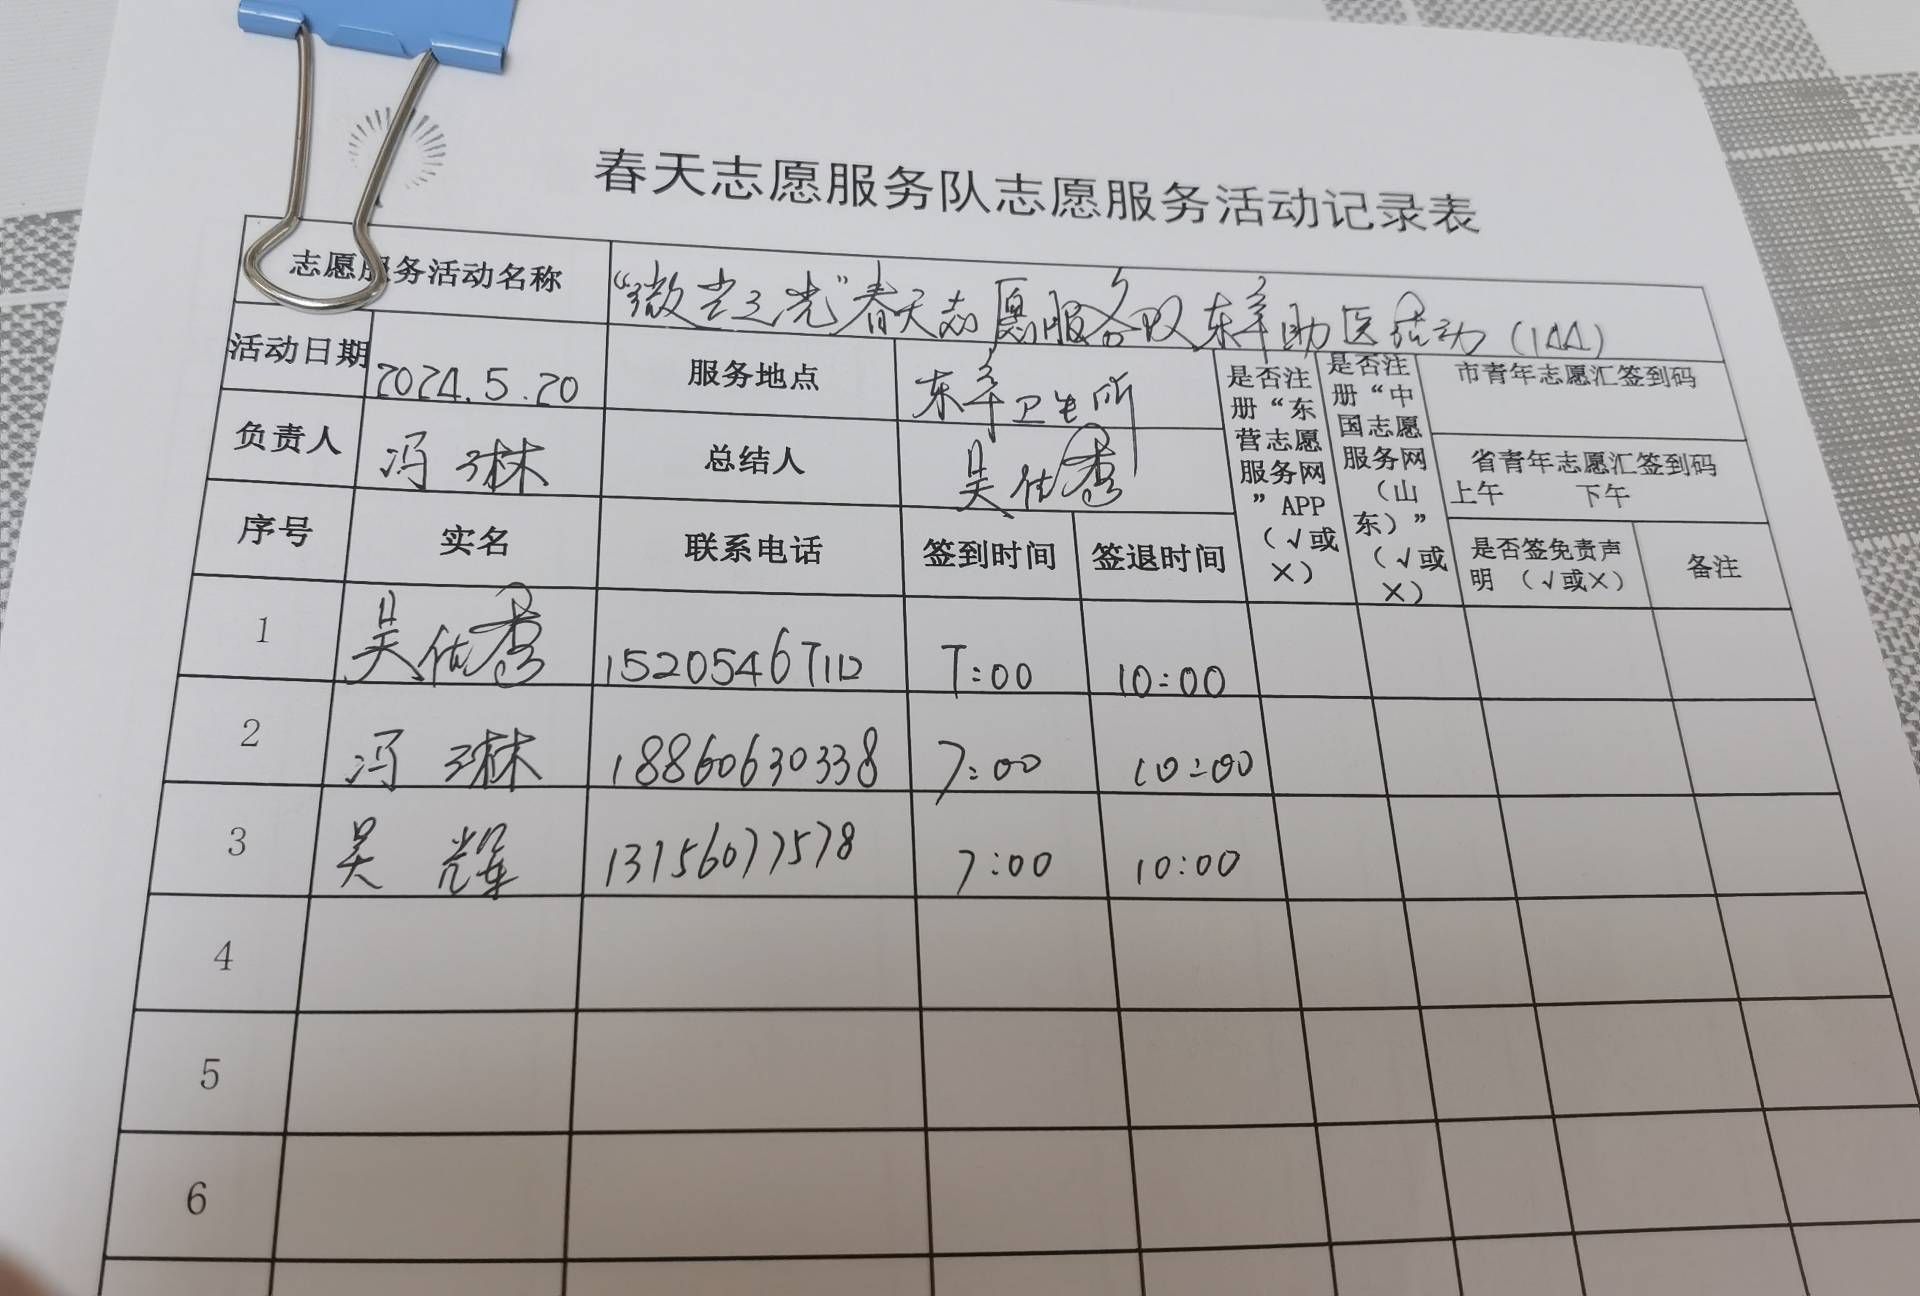 春天志愿服务队志愿服务活动记录表
志愿服务活动名称 “微尘之光”春天志愿服务队东辛助医活动(144)
活动日期 2024.5.20 服务地点 东辛卫生所
负责人 冯琳 总结人 吴 秀
是否注册“东营志愿服务网”APP(√或×)
是否注册“中国志愿服务网(山东)”(√或×)
市青年志愿汇签到码
省青年志愿汇签到码
上午 下午
序号 实名 联系电话 签到时间 签退时间 是否签免责声明 (√或×) 备注
1 吴 秀 152054671 7:00 10:00
2 冯琳 18860630338 7:00 10:00
3 吴辉 13156077578 7:00 10:00
4
5
6